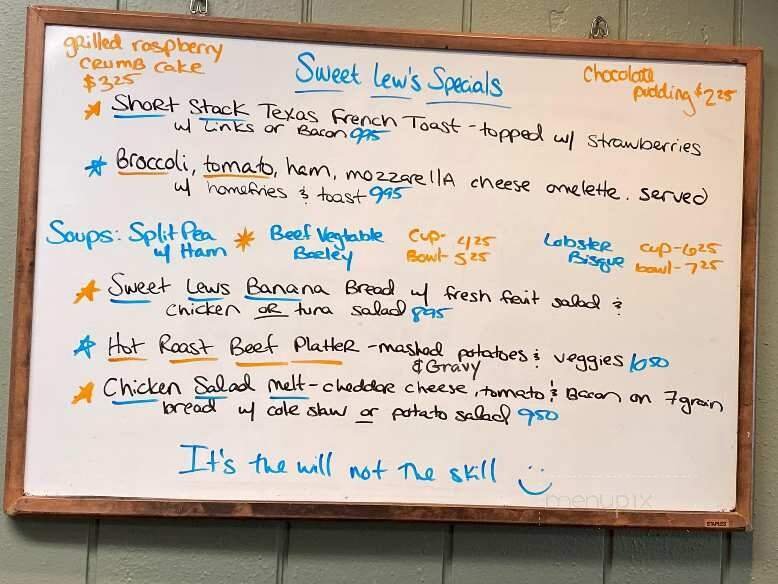 grilled raspberry
crumb cake
$3.25
Sweet Lew's Specials
Chocolate
pudding $2.25
Short Stack Texas French Toast - topped w/ strawberries
w/ Links or Bacon 995
Broccoli, tomato, ham, mozzarella cheese omelette. served
w/ homefries & toast 995
Soups: Split Pea
w/ Ham
Beef Vegtable
Barley
Cup- 425
Bowl- 525
Lobster
Bisque
cup-625
bowl-725
Sweet Lews Banana Bread w/ fresh fruit salad &
chicken or tuna salad 895
Hot Roast Beef Platter - mashed potatoes & veggies 1050
& Gravy
Chicken Salad melt - cheddar cheese, tomato & Bacon on 7 grain
bread w/ cole slaw or potato salad 950
It's the will not the skill
menupix
STAPLES